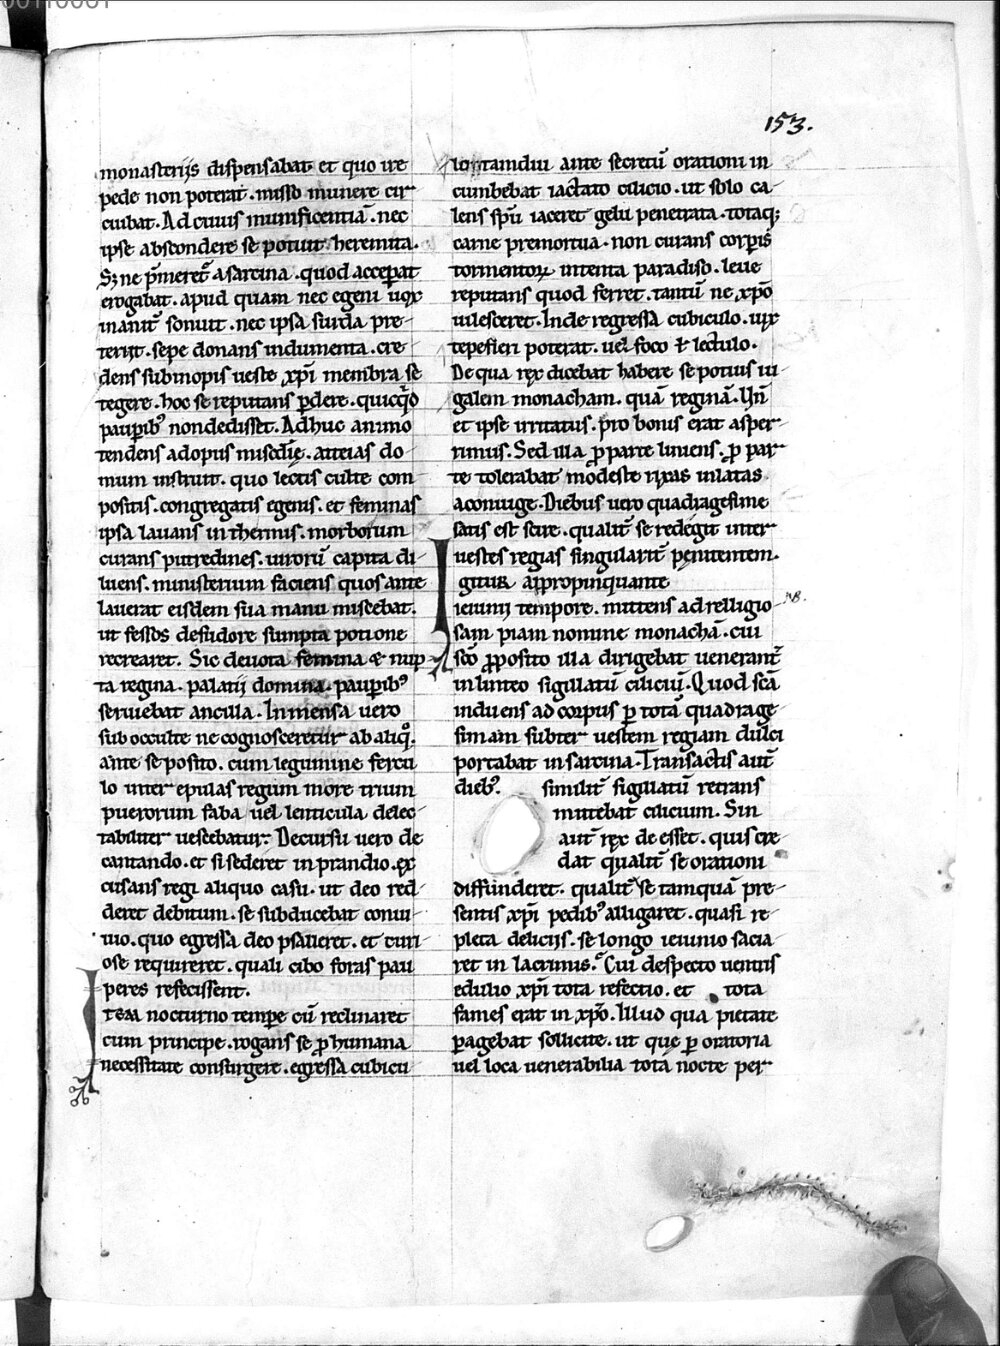 153.
monasterijs dispensabat et quo ire
pede non poterat. misso munere cir
cuibat. Ad cuius munificentiā. nec
ipse abscondere se potuit heremita.
erogabat. apud quam nec egeni uox
inanit̄ sonuit. nec ipsa surda pre-
terijt. sepe donans indumenta. cre-
dens sub inopis ueste xp̄i membra se
tegere. hoc se reputans ꝑdere. quicq̄d
pauꝑib᷒ non dedisset. Adhuc animo
tendens ad opus misc̄die. atteias do-
mum instruit. quo lectis culte com
positis. congregatis egenis. et feminas
ipsa lauans in thermis. morborum
curans putredines. uirorū capita di-
luens. ministerium faciens quos ante
lauerat eisdem sua manu miscebat.
ut fessos de sudore sumpta potione
recrearet. Sic deuota femina & nup-
ta regina. palatij domina. pauꝑib᷒
seruiebat ancilla. In mensa uero
sub occulte ne cognosceretur ab aliq̊.
ante se posito. cum legumine fercu
lo inter epulas regum more trium
puerorum faba uel lenticula delec-
tabiliter uescebatur. Decursu uero de
cantando. et si sederet in prandio. ex
cusans regi aliquo casu. ut deo red-
deret debitum. se subducebat conui-
uio. quo egressa deo psalleret. et curi-
ose requireret. quali cibo foras pau
peres refecissent.
ITEM nocturno tempe cū reclinaret
cum principe. rogans se ꝓ humana
necessitate consurgere. egressa cubicu
lo tamdiu ante secretū orationi in
cumbebat iactato cilicio. ut solo ca-
lens spū iaceret gelu penetrata. totaq;
carne premortua. non curans corꝑis
tormentoꝝ intenta paradiso. leue
reputans quod ferret. tantū ne xp̄o
uilesceret. Inde regressa cubiculo. uix
tepefieri poterat. uel foco ł lectulo.
De qua rex dicebat habere se potius iu-
galem monacham. quā reginā. Un̄
et ipse irritatus. pro bonis erat asper-
rimus. Sed illa ꝓ parte liniens. ꝓ par-
te tolerabat modeste rixas inlatas
a coniuge. Diebus uero quadragesime
satis est scire. qualit̄ se redegit inter
uestes regias singularit̄ penitentem.
IGITUR appropinquante
ieiunij tempore. mittens ad relligio-
NB.
sam piam nomine monachā. cui
sc̄o ꝓposito illa dirigebat uenerant̄
in linteo sigillatū ciliciū. Quod sc̄a
induens ad corpus ꝑ totā quadrage-
simam subter uestem regiam dulci
portabat in sarcina. Transactis aut̄
dieb᷒. similit̄ sigillatū retrans
mittebat cilicium. Sin
aut̄ rex deesset. quis cre-
dat qualit̄ se orationi
diffunderet. qualit̄ se tamquā pre-
sentis xp̄i pedib᷒ alligaret. quasi re-
pleta delicijs. se longo ieiunio sacia-
ret in lacrimis. Cui despecto uentris
edulio xp̄i tota refectio. et tota
fames erat in xp̄o. Illud qua pietate
ꝑagebat sollicite. ut que ꝑ oratoria
uel loca uenerabilia tota nocte per-